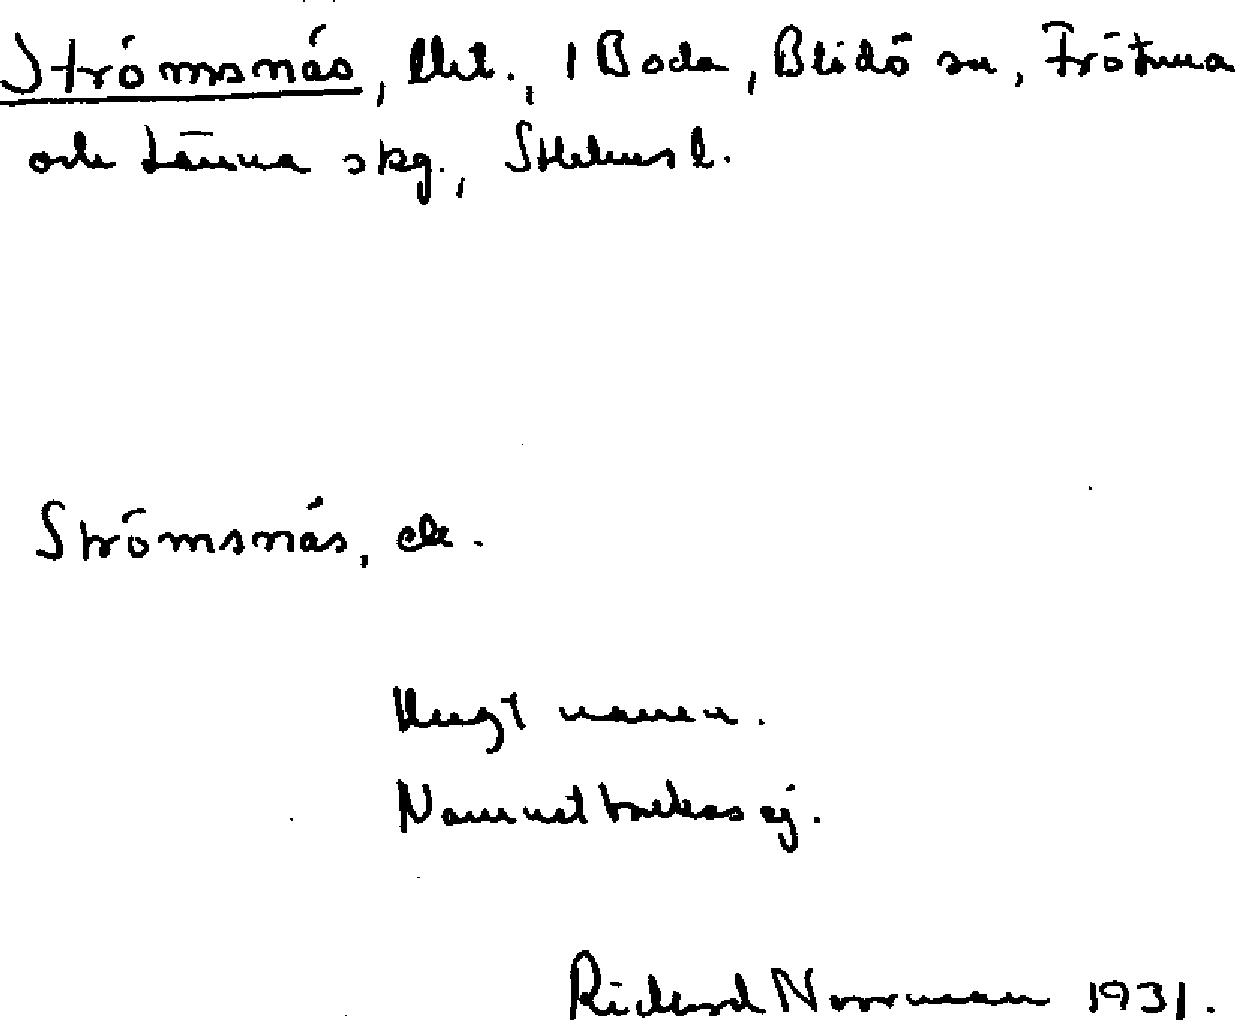 Strömsnäs, lht., 1 Boda, Blidö sn, Frötuna
och Länna skg., Sthlms l.
Strömsnäs, ek.
Ungt namn.
Namnet brukas ej.
Rickard Norrman 1931.